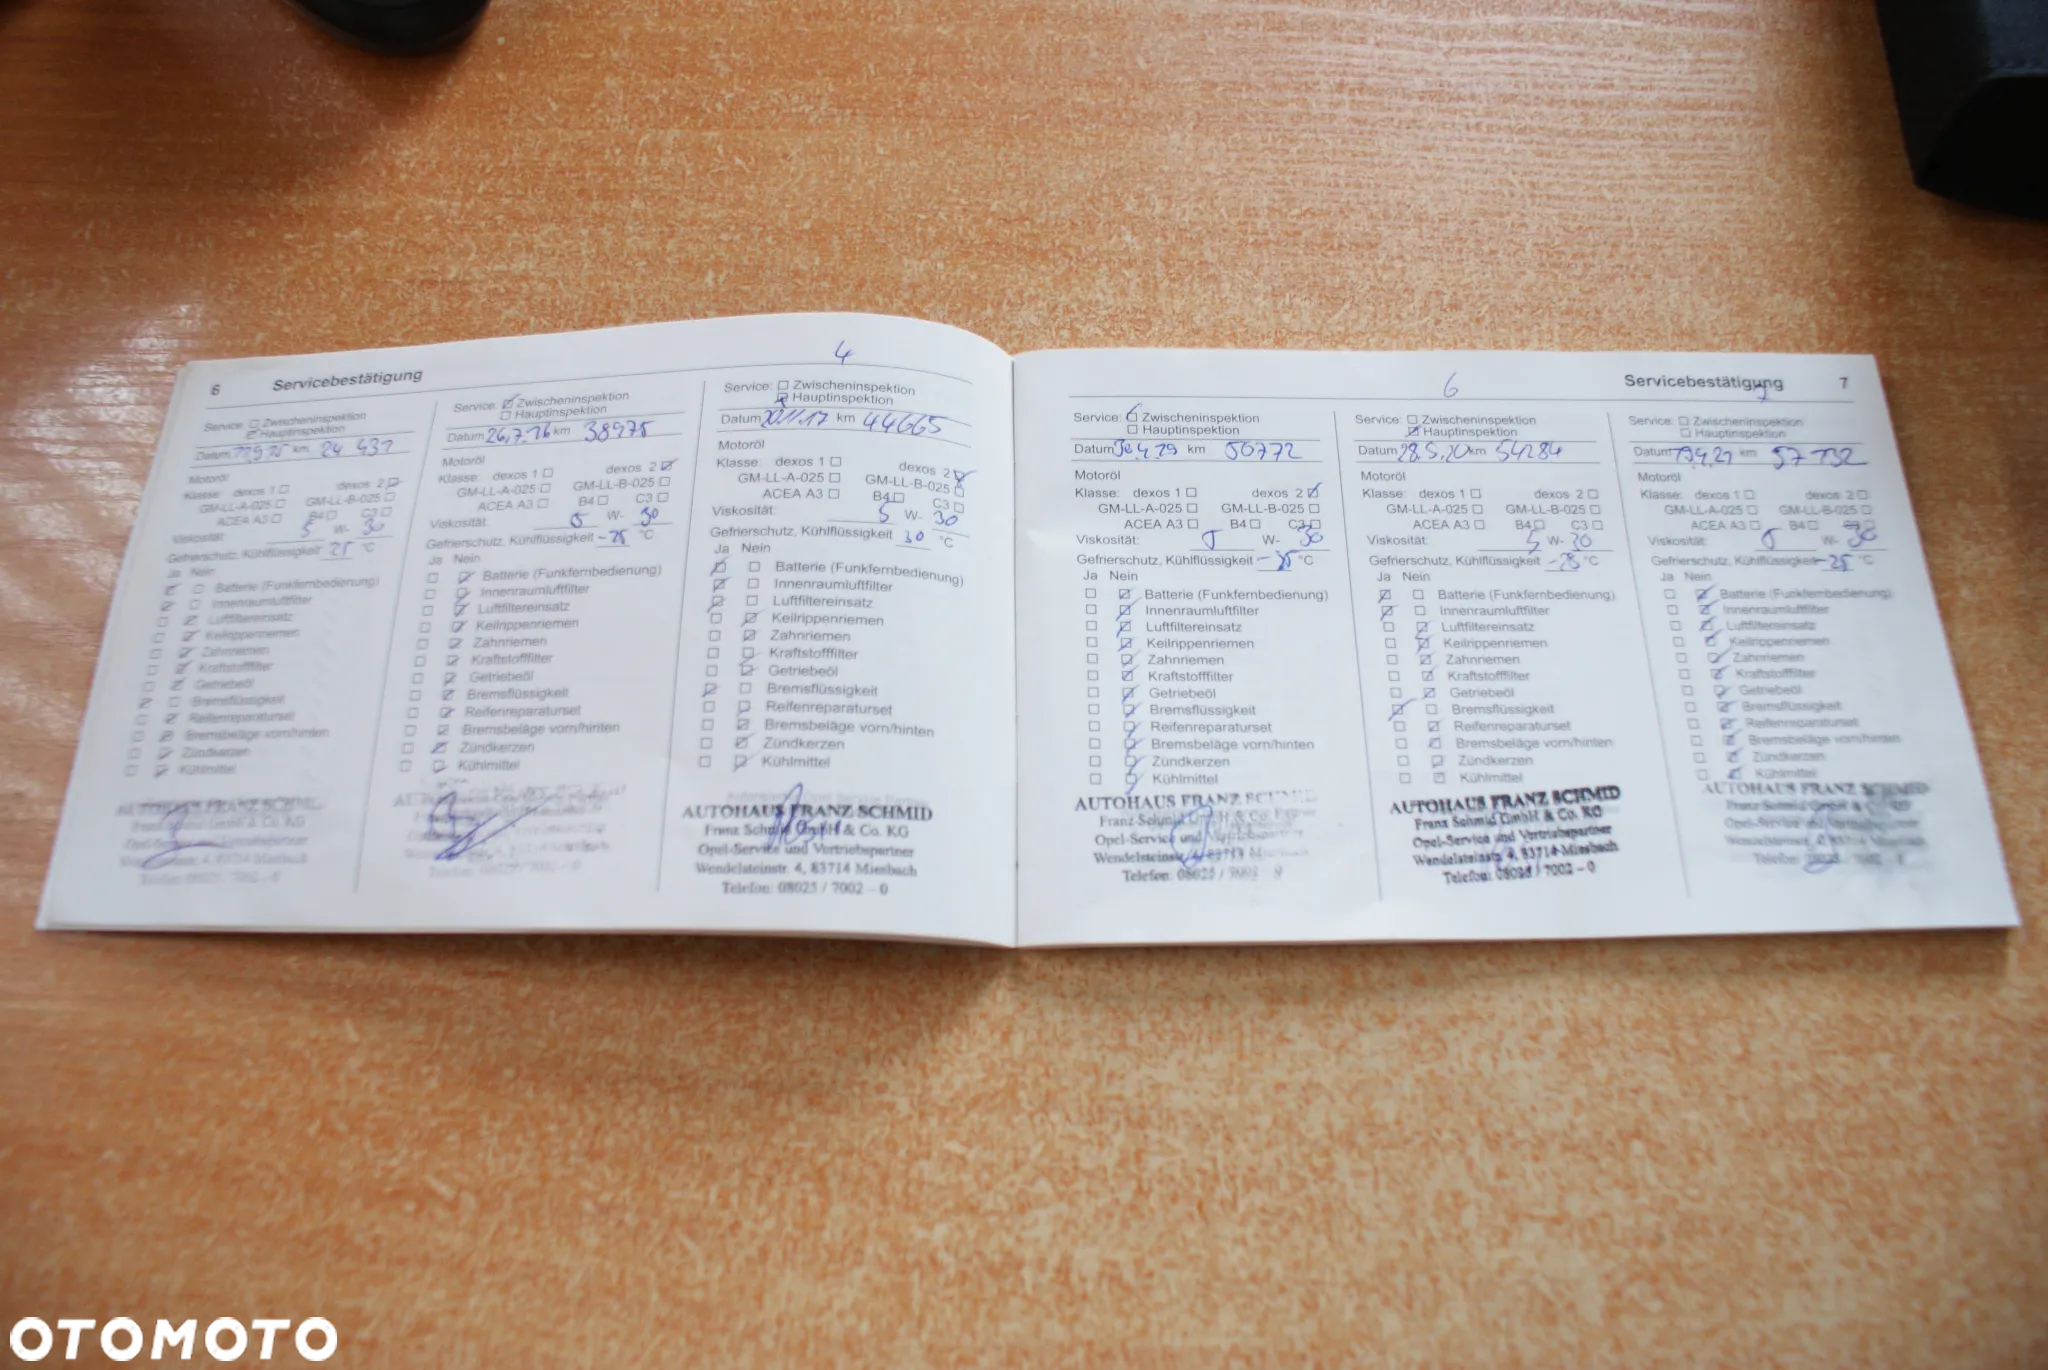 6 Servicebestätigung
Service: Zwischeninspektion
Hauptinspektion
Datum km 24 431
Motoröl
Klasse: dexos 1 dexos 2
GM-LL-A-025 GM-LL-B-025
ACEA A3 B4 C3
Viskosität: 5 W- 30
Gefrierschutz, Kühlflüssigkeit 25 °C
Ja Nein
Batterie (Funkfernbedienung)
Innenraumluftfilter
Luftfiltereinsatz
Keilrippenriemen
Zahnriemen
Kraftstofffilter
Getriebeöl
Bremsflüssigkeit
Reifenreparaturset
Bremsbeläge vorn/hinten
Zündkerzen
Kühlmittel
AUTOHAUS FRANZ SCHMID
Franz Schmid GmbH & Co. KG
Opel-Service und Vertriebspartner
Wendelsteinstr. 4, 83714 Miesbach
Telefon: 08025 / 7002 - 0
Service: Zwischeninspektion
Hauptinspektion
Datum 26.7.16 km 38975
Motoröl
Klasse: dexos 1 dexos 2
GM-LL-A-025 GM-LL-B-025
ACEA A3 B4 C3
Viskosität: 5 W- 30
Gefrierschutz, Kühlflüssigkeit -25 °C
Ja Nein
Batterie (Funkfernbedienung)
Innenraumluftfilter
Luftfiltereinsatz
Keilrippenriemen
Zahnriemen
Kraftstofffilter
Getriebeöl
Bremsflüssigkeit
Reifenreparaturset
Bremsbeläge vorn/hinten
Zündkerzen
Kühlmittel
4
Service: Zwischeninspektion
Hauptinspektion
Datum 20.11.17 km 44665
Motoröl
Klasse: dexos 1 dexos 2
GM-LL-A-025 GM-LL-B-025
ACEA A3 B4 C3
Viskosität: 5 W- 30
Gefrierschutz, Kühlflüssigkeit 30 °C
Ja Nein
Batterie (Funkfernbedienung)
Innenraumluftfilter
Luftfiltereinsatz
Keilrippenriemen
Zahnriemen
Kraftstofffilter
Getriebeöl
Bremsflüssigkeit
Reifenreparaturset
Bremsbeläge vorn/hinten
Zündkerzen
Kühlmittel
AUTOHAUS FRANZ SCHMID
Franz Schmid GmbH & Co. KG
Opel-Service und Vertriebspartner
Wendelsteinstr. 4, 83714 Miesbach
Telefon: 08025 / 7002 - 0
6 Servicebestätigung 7
Service: Zwischeninspektion
Hauptinspektion
Datum km 50772
Motoröl
Klasse: dexos 1 dexos 2
GM-LL-A-025 GM-LL-B-025
ACEA A3 B4 C3
Viskosität: 5 W- 30
Gefrierschutz, Kühlflüssigkeit -25 °C
Ja Nein
Batterie (Funkfernbedienung)
Innenraumluftfilter
Luftfiltereinsatz
Keilrippenriemen
Zahnriemen
Kraftstofffilter
Getriebeöl
Bremsflüssigkeit
Reifenreparaturset
Bremsbeläge vorn/hinten
Zündkerzen
Kühlmittel
AUTOHAUS FRANZ SCHMID
Franz Schmid GmbH & Co.
Opel-Service und Vertriebspartner
Wendelsteinstr. 4, 83714 Miesbach
Telefon: 08025 / 7002 - 0
Service: Zwischeninspektion
Hauptinspektion
Datum 28.5.20 km 54284
Motoröl
Klasse: dexos 1 dexos 2
GM-LL-A-025 GM-LL-B-025
ACEA A3 B4 C3
Viskosität: 5 W- 30
Gefrierschutz, Kühlflüssigkeit -25 °C
Ja Nein
Batterie (Funkfernbedienung)
Innenraumluftfilter
Luftfiltereinsatz
Keilrippenriemen
Zahnriemen
Kraftstofffilter
Getriebeöl
Bremsflüssigkeit
Reifenreparaturset
Bremsbeläge vorn/hinten
Zündkerzen
Kühlmittel
AUTOHAUS FRANZ SCHMID
Franz Schmid GmbH & Co. KG
Opel-Service und Vertriebspartner
Wendelsteinstr. 4, 83714 Miesbach
Telefon: 08025 / 7002 - 0
Service: Zwischeninspektion
Hauptinspektion
Datum 19.4.21 km 57 132
Motoröl
Klasse: dexos 1 dexos 2
GM-LL-A-025 GM-LL-B-025
ACEA A3 B4 C3
Viskosität: 5 W- 30
Gefrierschutz, Kühlflüssigkeit -25 °C
Ja Nein
Batterie (Funkfernbedienung)
Innenraumluftfilter
Luftfiltereinsatz
Keilrippenriemen
Zahnriemen
Kraftstofffilter
Getriebeöl
Bremsflüssigkeit
Reifenreparaturset
Bremsbeläge vorn/hinten
Zündkerzen
Kühlmittel
AUTOHAUS FRANZ SCHMID
Franz Schmid GmbH & Co. KG
Opel-Service und Vertriebspartner
Wendelsteinstr. 4, 83714 Miesbach
Telefon: 08025
OTOMOTO